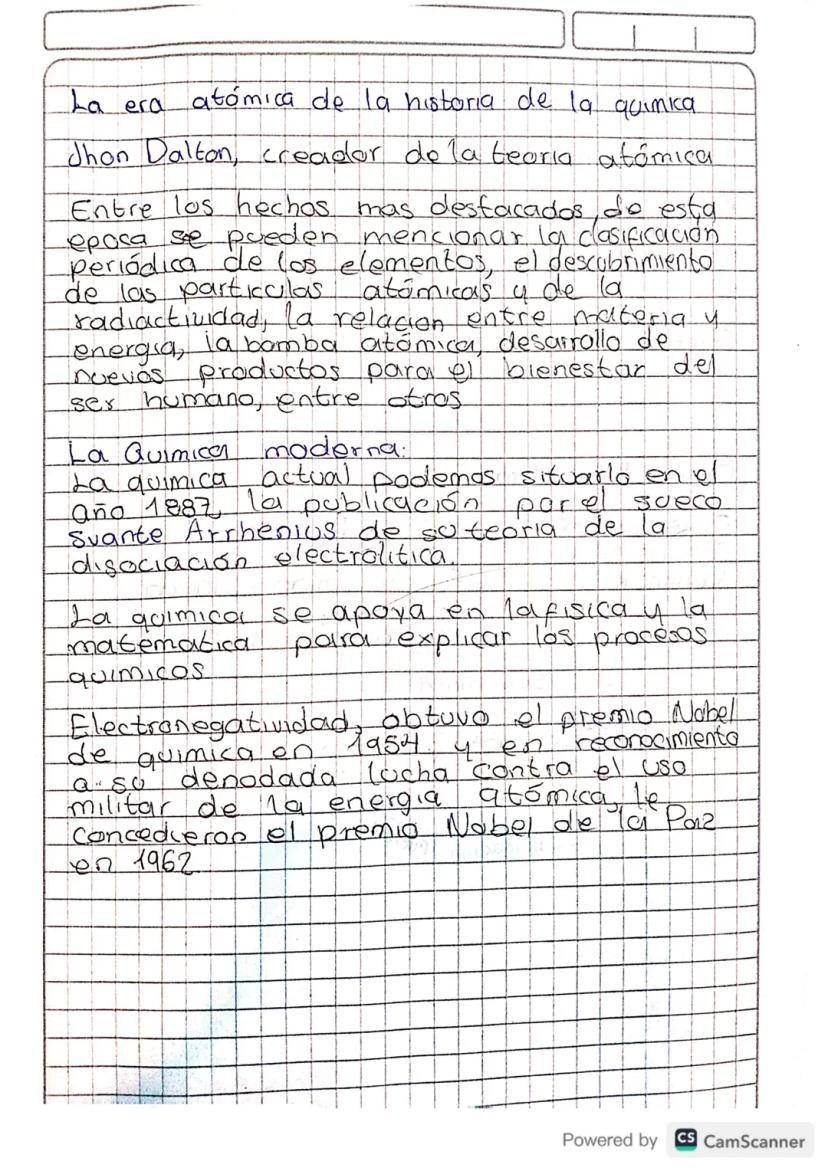 La era atómica de la historia de la quimica
Jhon Dalton, creador de la teoria atómica
Entre los hechos mas destacados, de esta
epoca se pueden mencionar la clasificación
periódica de los elementos, el descubrimiento
de las particulas atómicas y de la
radiactividad, la relacion entre materia y
energia, la bomba atómica, desarrollo de
nuevos productos para el bienestar del
ser humano, entre otros
La Quimica moderna:
La quimica actual podemos situarlo en el
año 1887, la publicación por el sueco
Svante Arrhenius de su teoria de la
disociación electrolitica.
La quimica se apoya en la fisica y la
matematica para explicar los procesos
quimicos
Electronegatividad, obtuvo el premio Nobel
de quimica en 1954 y en reconocimiento
a su denodada lucha contra el uso
militar de la energia atómica, le
concedieron el premio Nobel de la Paz
en 1962
Powered by CS CamScanner